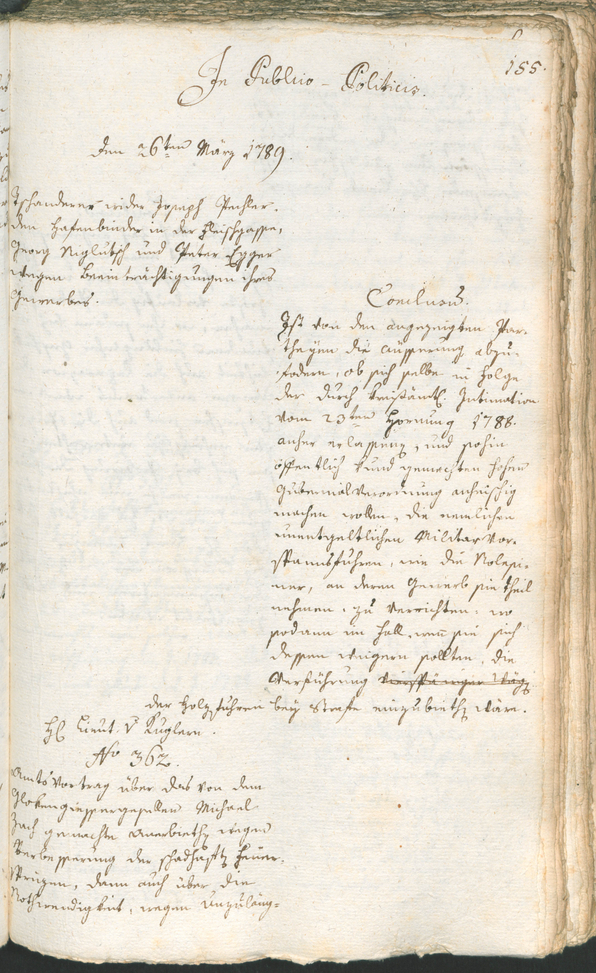 155.
In Publico-Politicis.
den 26ten März 1789.
Tschanderer wider Joseph Pechler.
den Hafenbinder in der Fleischgasse,
Georg Niglutsch und Peter Egger
wegen Beeinträchtigungen ihres
Gewerbes.
Conclusum.
Ist von den angezeigten Par-
theyen die äusserung abzu-
fodern, ob sich selbe in Folge
der durch kreisämtl. Intimation
vom 23ten Hornung 1788.
anher erlassene, und sohin
öffentlich kund gemachten hohen
Gubernial Verordnung anheischig
machen wollen, die nemlichen
unentgeltlichen Militar Vor-
spannsfuhren, wie die
an deren Gewerb sie theil
nehmen, zu verrichten, wo
sodann im Fall, wenn sie sich
dessen weigern sollten, die
Verführung
der Holzfuhren bey Strafe einzubiethen wäre.
H. Lieut. v Kuglern.
No 362.
Amts Vortrag über das von dem
Glokengiessergesellen Michael
Zach gemachte Anerbiethen wegen
Verbesserung der schadhaften Feuer-
sprizen, dann auch über die
Nothwendigkeit, wegen Unzuläng-